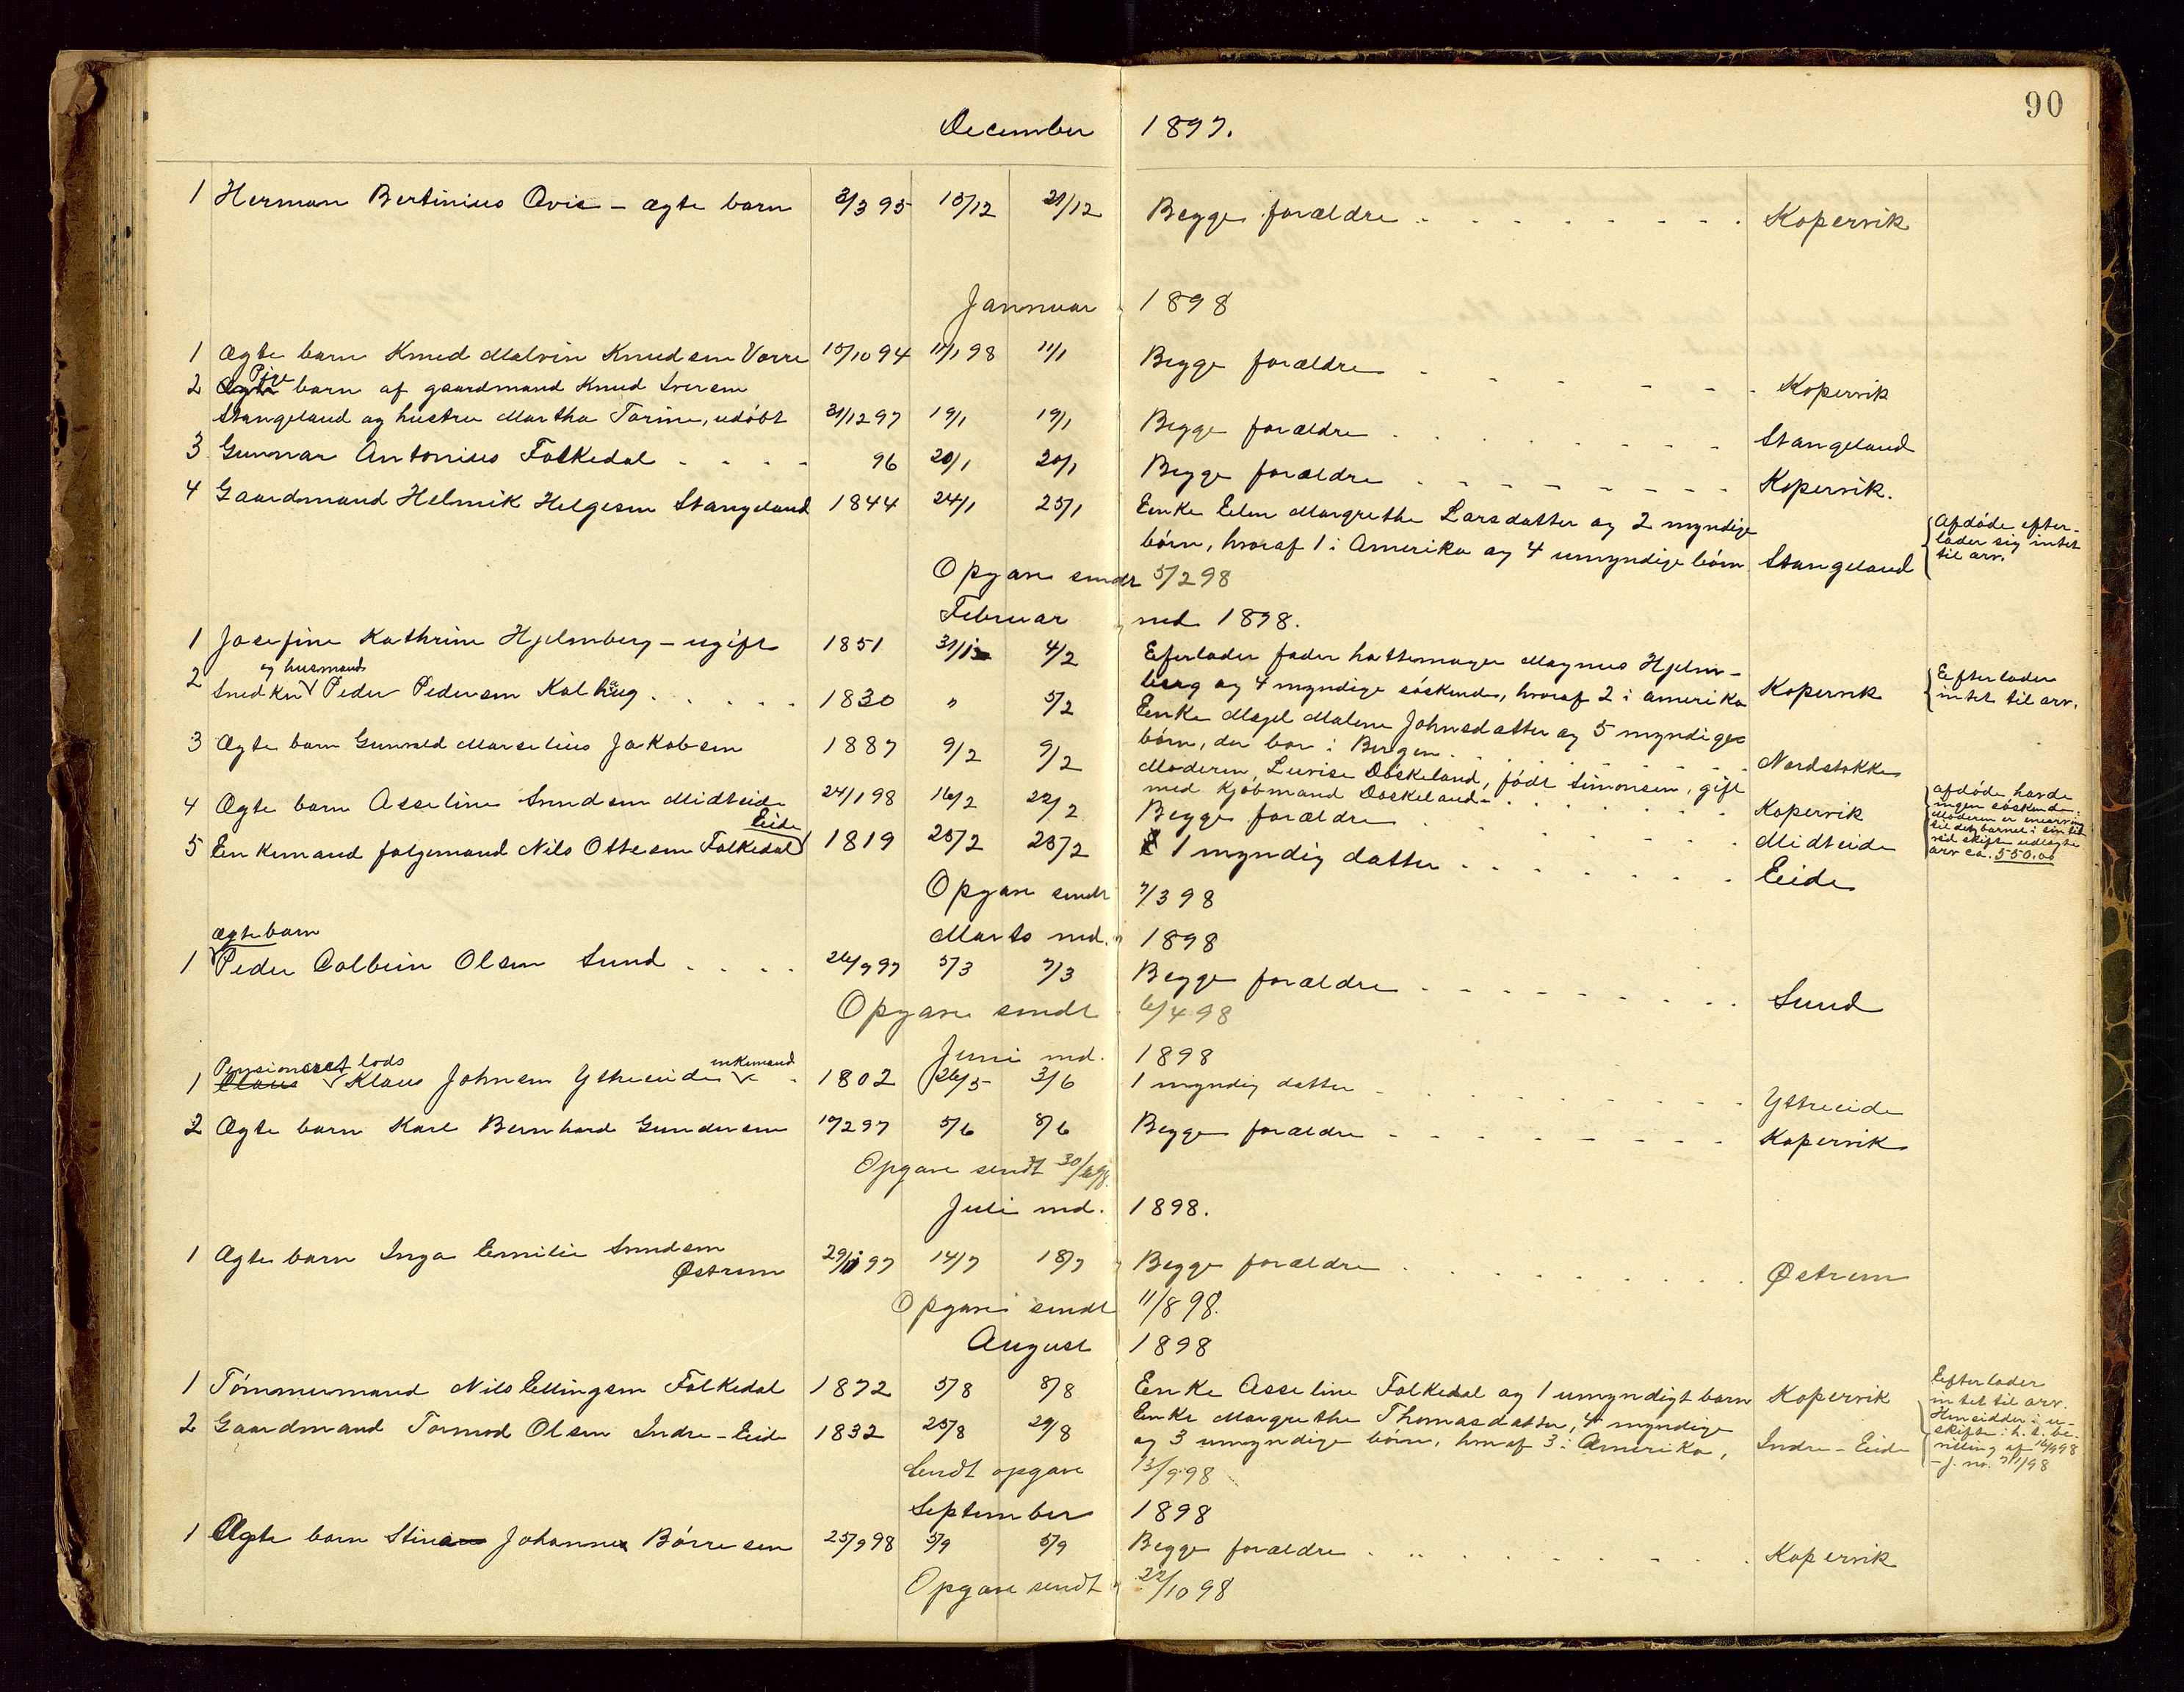 90
December 1897.
1 Herman Bertinius Qvie - ægte barn 3/3 95 15/12 21/12 Begge forældre Kopervik
Jannuar 1898
1 Ægte barn Knud Malvin Knudsen Vorre 15/10 94 11/1 98 11/1 Begge forældre Kopervik
Pige
2 Ægte barn af gaardmand Knud Iversen
Stangeland og hustru Martha Torine, udøbt 31/12 97 19/1 19/1 Begge forældre Stangeland
3 Gunnar Antonius Folkedal 96 20/1 20/1 Begge forældre Kopervik.
4 Gaardmand Helmik Helgesen Stangeland 1844 24/1 25/1 Enke Elen Margrethe Larsdatter og 2 myndige
børn, hvoraf 1 i Amerika og 4 umyndige børn Stangeland
Afdøde efter-
lader sig intet
til arv.
Opgave sendt 5/2 98
Februar md 1898.
1 Josefine Kathrine Hjelmberg - ugift 1851 31/1 4/2 Eferlader fader hattemager Magnus Hjelm-
berg og 4 myndige søskende, hvoraf 2 i amerika Kopervik
Efterlader
intet til arv.
og husmand
2 Snedker Peder Pedersen Kalhaug 1830 " 5/2 Enke Magel Malene Johnsdatter og 5 myndige
børn, der bor i Bergen Nordstokke
3 Ægte barn Gunvald Marselius Jakobsen 1887 9/2 9/2 Moderen, Lovise Doskeland, født Simonsen, gift
med Kjøbmand Doskeland Kopervik
afdøde havde
ingen søskende.
Moderen er enearving
til den barnet i sin tid
ved skifte udlagte
arv ca. 550.00
4 Ægte barn Asseline Svendsen Midteide 24/1 98 16/2 22/2 Begge forældre Midteide
Eide
5 Enkemand folgemand Nils Ottesen Folkedal 1819 25/2 25/2 1 myndig datter Eide
Opgave sendt 7/3 98
Marts md. 1898
Ægte barn
1 Peder Colbein Olsen Sund 26/7 97 5/3 7/3 Begge forældre Sund
Opgave sendt 6/4 98
Juni md. 1898
Pensioneret lods enkemand
1 Claus Klaus Johnsen Ytreeide 1802 26/5 3/6 1 myndig datter Ytreeide
2 Ægte barn Karl Bernhard Gundersen 17/2 97 5/6 8/6 Begge forældre Kopervik
Opgave sendt 30/6 98.
Juli md. 1898.
1 Ægte barn Inga Emilie Svendsen
Østrem 29/11 97 14/7 18/7 Begge forældre Østrem
Opgave sendt 11/8 98.
August 1898
1 Tømmermand Nils Ellingsen Folkedal 1872 5/8 8/8 Enke Asseline Folkedal og 1 umyndigt barn Kopervik
Efterlader
intet til arv.
2 Gaardmand Tormod Olsen Indre-Eide 1832 25/8 29/8 Enke Margrethe Thomasdatter, 4 myndige
og 3 umyndige børn, hvoraf 3 i Amerika, Indre-Eide
Hensidder i u-
skifte i h. t. be-
villing af 16/9 98
- j. no. 711/98
Sendt opgave 13/9 98
September 1898
1 Ægte barn Stina Johanne Børresen 25/7 98 5/9 5/9 Begge forældre Kopervik
Opgave sendt 22/10 98